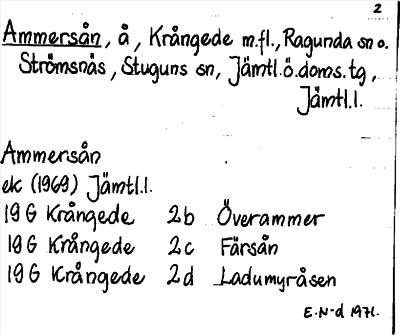 2
Ammersån, å, Krångede m.fl., Ragunda sn o.
Strömsnäs, Stuguns sn, Jämtl.ö.doms.tg,
Jämtl.l.
Ammersån
ek (1969) Jämtl.l.
19 G Krångede 2b Överammer
19 G Krångede 2c Färsån
19 G Krångede 2d Ladumyråsen
E.N-d 1971.